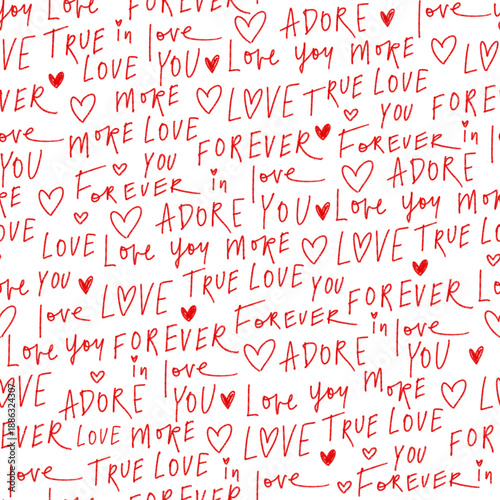 USE TRUE in love ADORE love
LOVE YOU Love you MORE
EVER MORE LOVE TRUE LOVE FOREVER
love MORE LOVE FOREVER you Forever
YOU Forever YOU in love ADORE YOU
RE ADORE YOU Love you MORE
OVE LOVE Love you MORE LOVE TRUE LOVE
love YOU LOVE TRUE LOVE YOU FOREVER L
love FOREVER Forever in love
Love you in love ADORE YOU
OVE ADORE YOU Love you MORE LOVE
EVER LOVE MORE LOVE TRUE LOVE FOR
love TRUE LOVE in love Forever YOU
1886324307
Adobe Stock